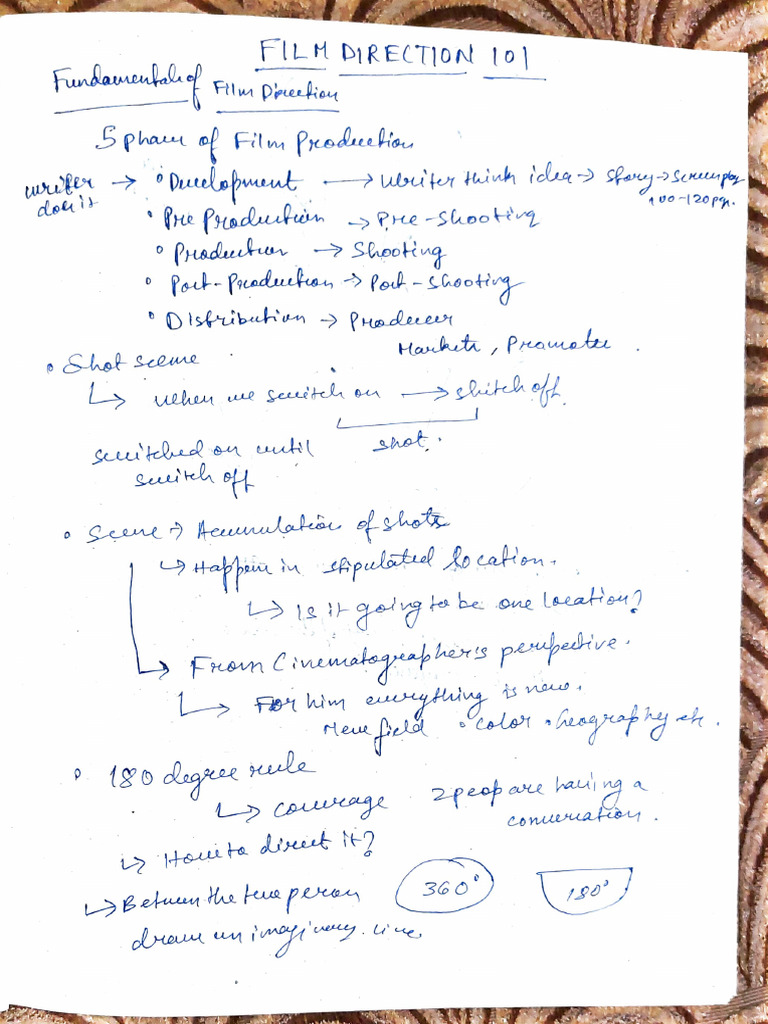 FILM DIRECTION 101
Fundamentals of Film Direction
5 phases of Film Production
writer does it → • Development → Writer think idea → Story → Screenplay
100-120 pgs.
• Pre Production → Pre-shooting
• Production → Shooting
• Post-Production → Post-shooting
• Distribution → Producer
Markets, Promotes.
• Shot scene
↳ when we switch on → switch off.
switched on until shot.
switch off
• Scene → Accumulation of shots
↳ Happen in stipulated location.
↳ Is it going to be one location?
↳ From Cinematographer's perspective.
↳ For him everything is new.
New field • color • Geography etc.
• 180 degree rule
↳ coverage 2 peop are having a
conversation.
↳ How to direct it?
↳ Between the two person 360° 180°
draw un imaginary line.